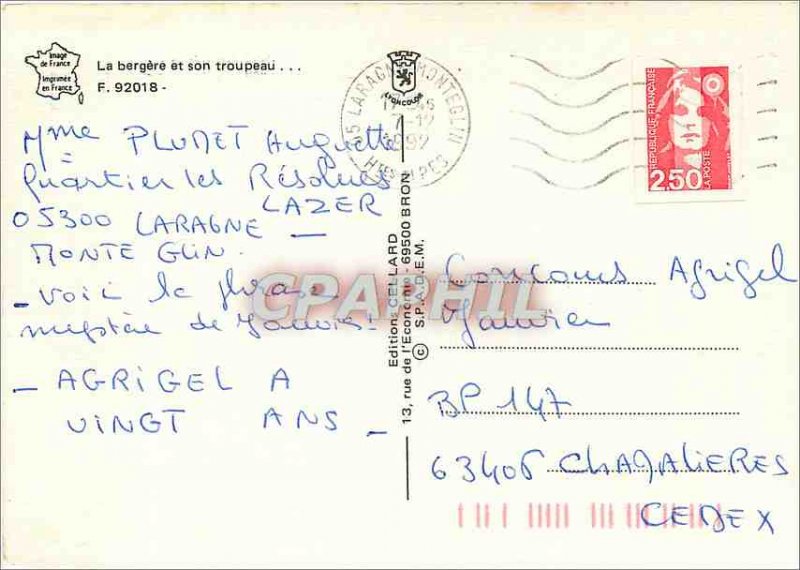 Image
de France
Imprimée
en France
La bergère et son troupeau . . .
F. 92018 -
LYONCOLOR
05 LARAGNE MONTEGLIN
7-12
1992
HTES ALPES
RÉPUBLIQUE FRANÇAISE
2,50
LA POSTE
Mme PLUMET Huguette
Quartier les Résolues
LAZER
05300 LARAGNE -
MONTE GLIN.
- Voici la phrase
mystère de Janvier!
- AGRIGEL A
VINGT ANS -
Editions CELLARD
13, rue de l'Economie - 69500 BRON
© S.P.A.D.E.M.
CPAPHIL
Concours Agrigel
Janvier
BP 147
63406 CHAMALIERES
CEDEX